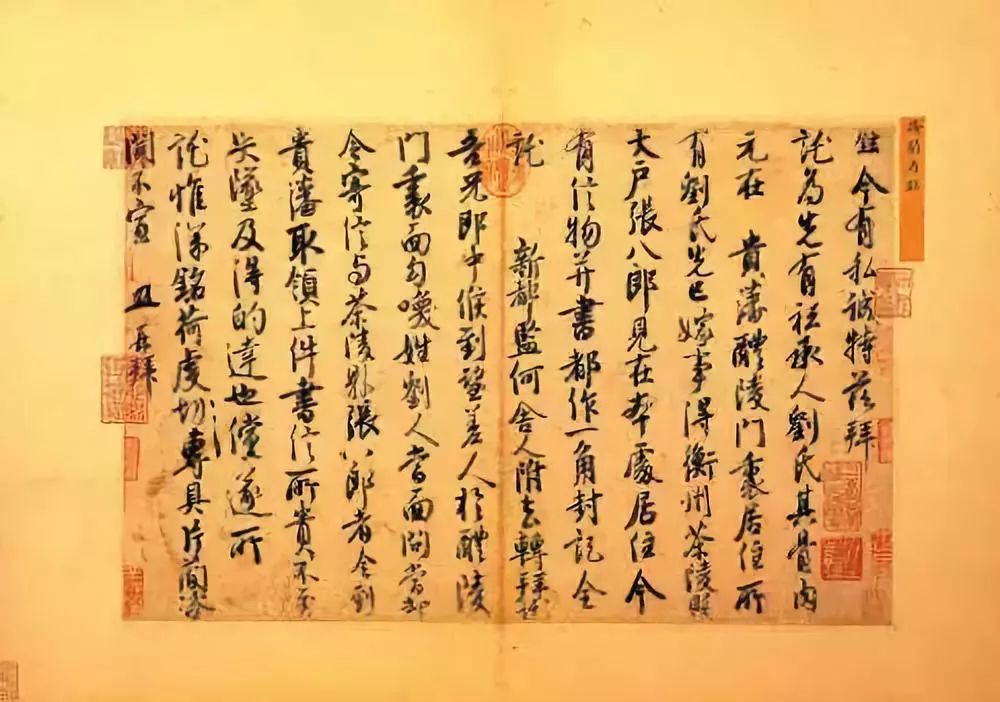 鉉今有私誠特茲拜
託為先有祗承人劉氏其骨肉
元在 貴藩醴陵門裏居住所
有劉氏先已嫁事得衡州茶陵縣
大戶張八郎見在本處居住今
有信物并書都作一角封記全
託 新都監何舍人附去轉拜託
吾兄郎中候到望差人於醴陵
門裏面勾喚姓劉人當面問當却
令寄信与茶陵縣張八郎者令到
貴藩取領上件書信所貴不至
失墜及得的達也儻遂所
託惟深銘荷虔切專具片簡咨
聞不宣 鉉再拜